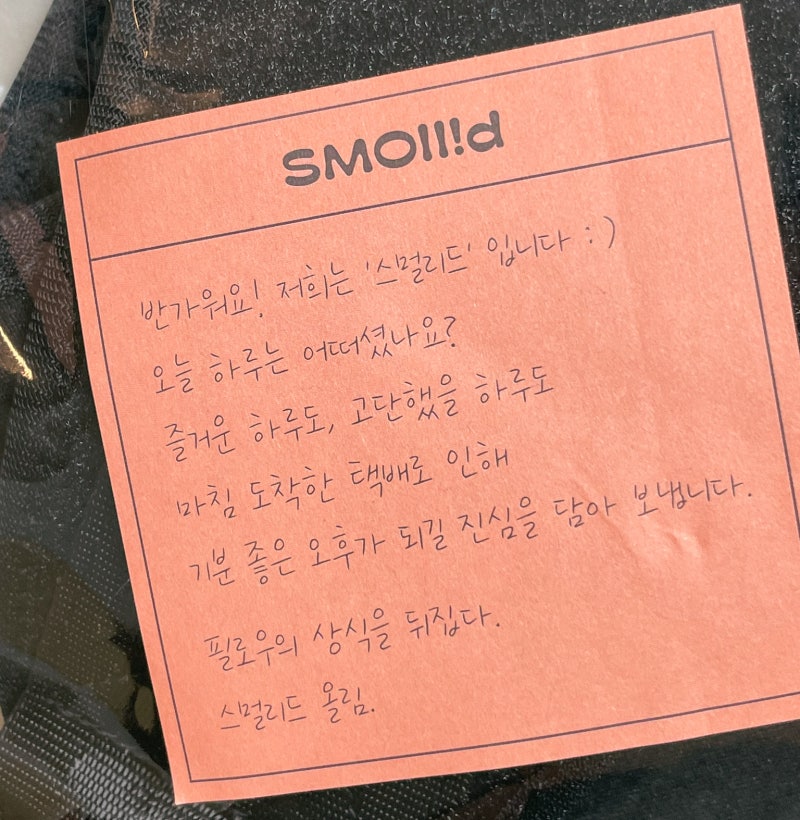 SMOll!d
반가워요! 저희는 '스멀리드' 입니다 :)
오늘 하루는 어떠셨나요?
즐거운 하루도, 고단했을 하루도
마침 도착한 택배로 인해
기분 좋은 오후가 되길 진심을 담아 보냅니다.
필로우의 상식을 뒤집다.
스멀리드 올림.